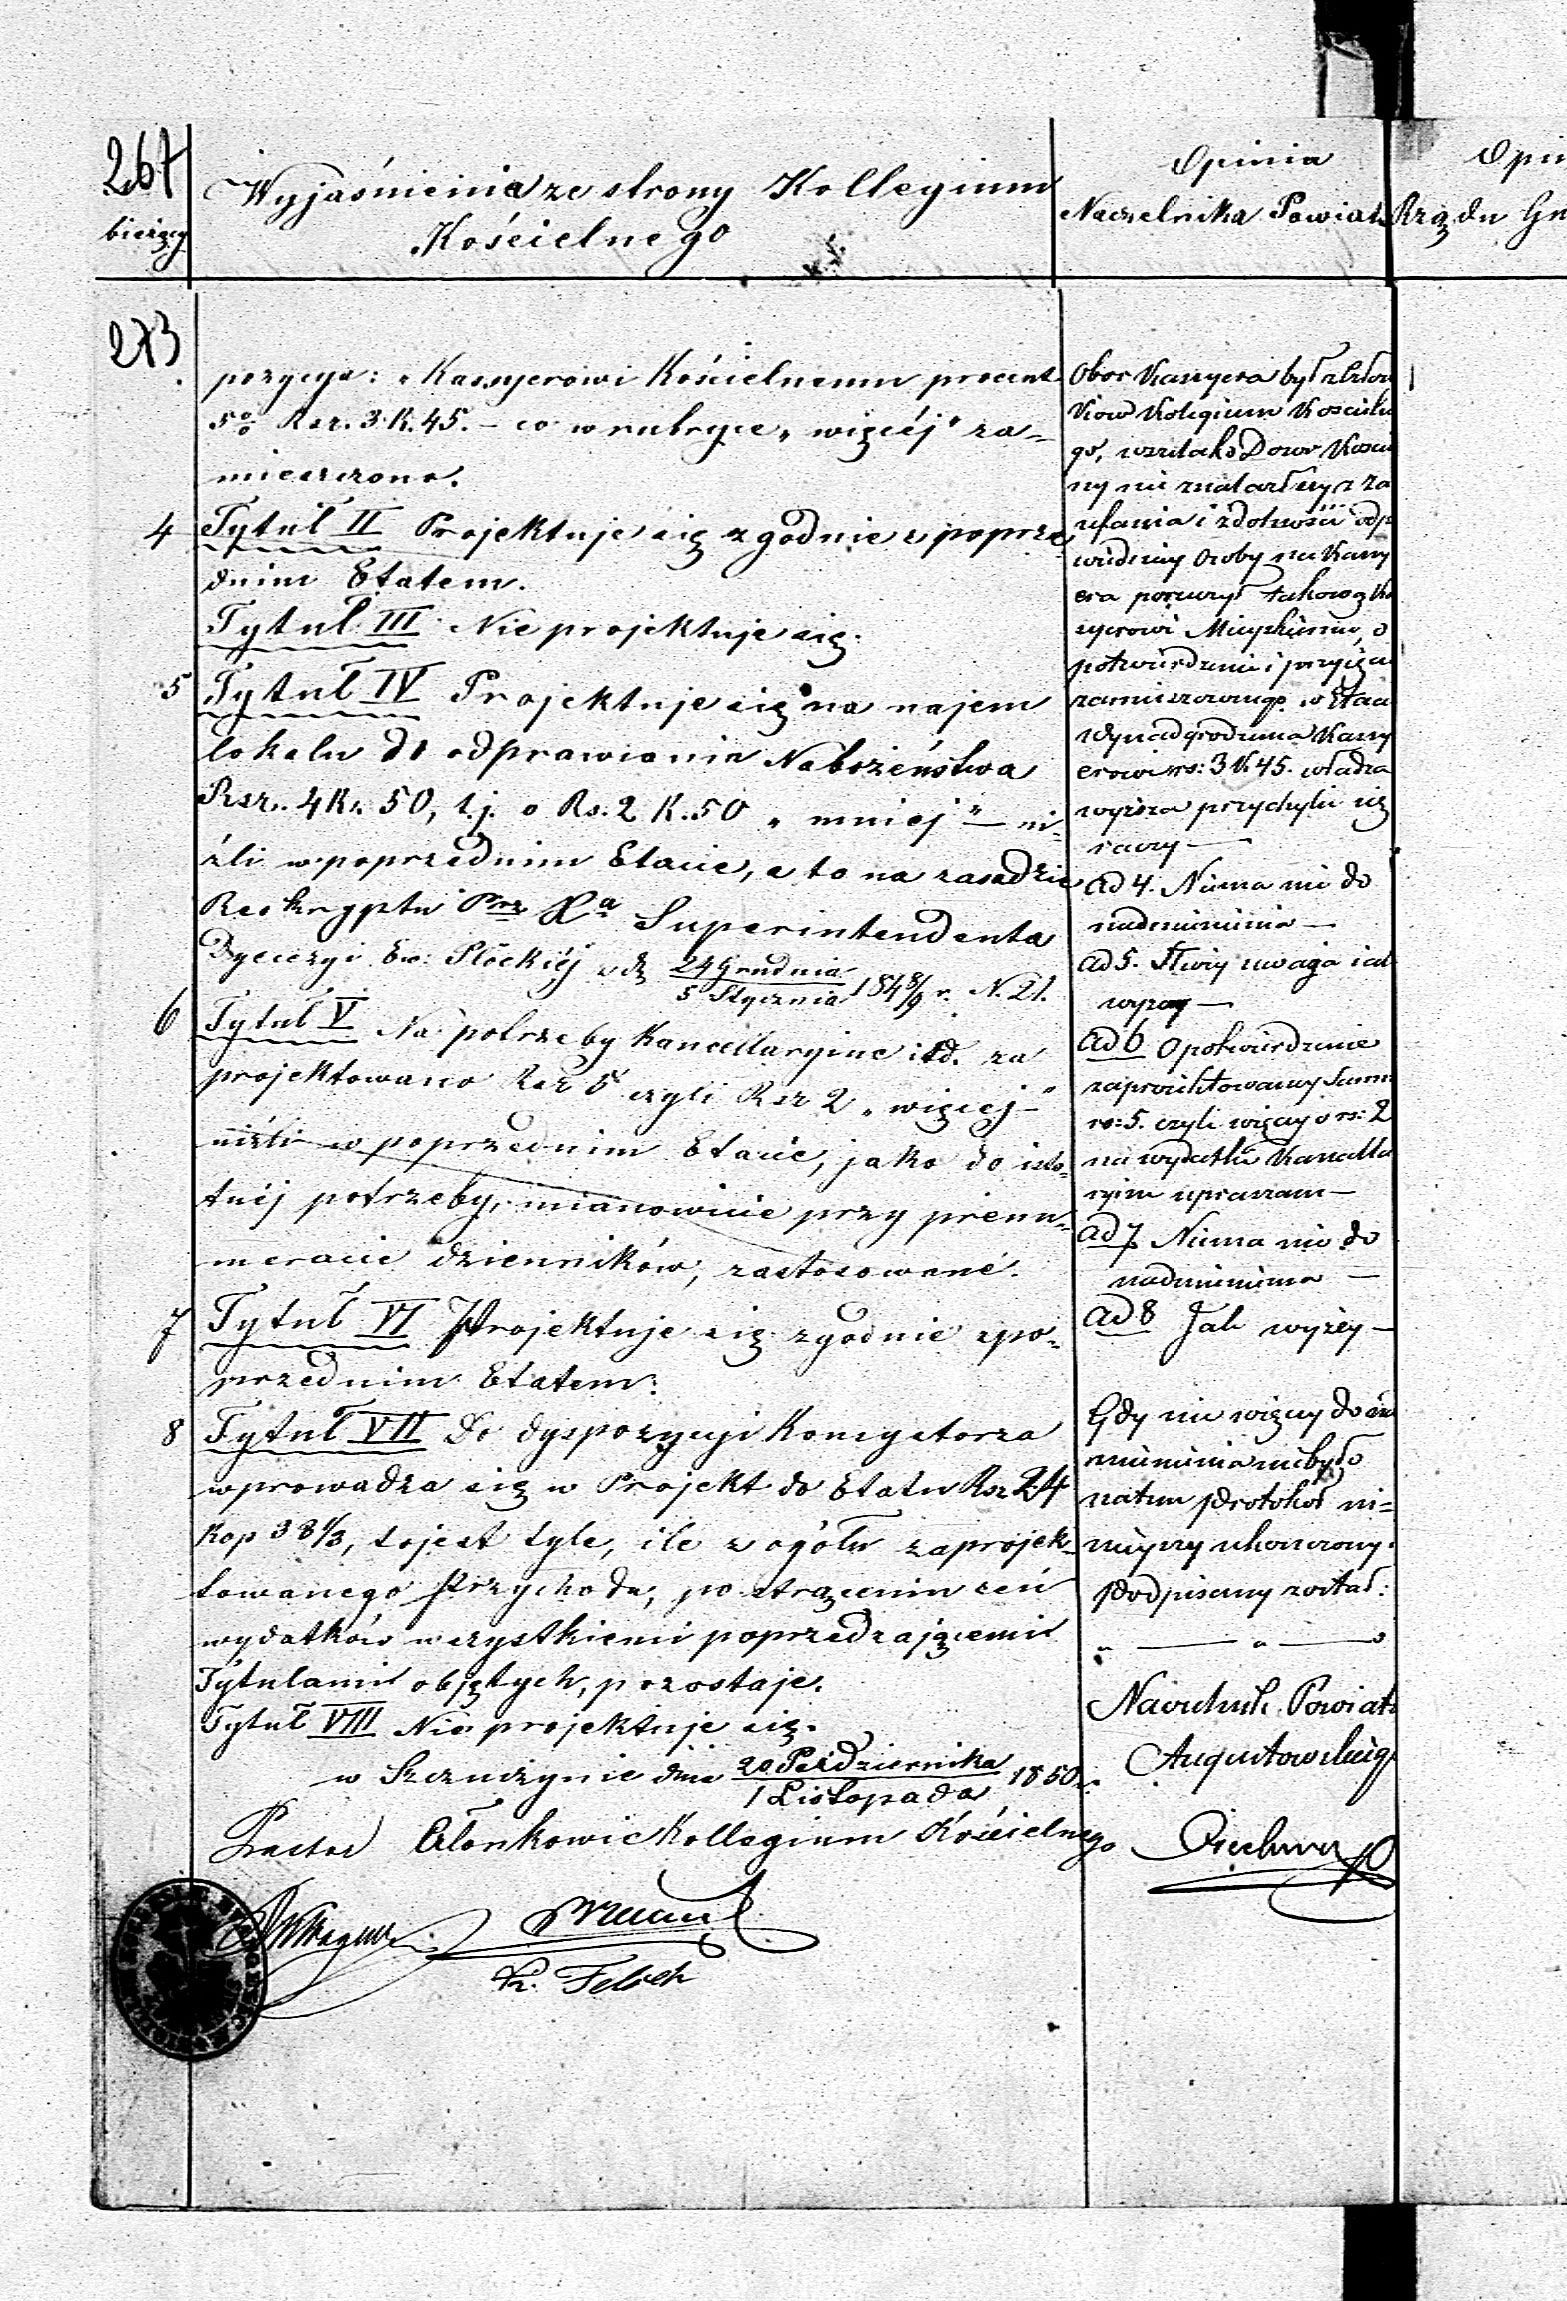 267
bieżący
Wyjaśnienia ze strony Kollegium
Kościelnego
Opinia
Naczelnika Powiat
Opin
Rządu Gu
273
pozycya: „Kassyerowi Kościelnemu procent
5% Rsr. 3. K. 45. – co w rubryce „więcéj" za-
mieszczono.
4 Tytuł II Projektuje się zgodnie z poprze
dnim Etatem.
Tytuł III Nie projektuje się.
5 Tytuł IV Projektuje się na najem
lokalu do odprawiania Nabożeństwa
Rsr. 4 K. 50, t.j. o Rs. 2 K. 50 „mniéj" – ni-
źli w poprzednim Etacie, a to na zasadzie
Reskryptu Prz Xa Superintendenta
Dyecezyi Ew: Płockiéj z d 24 Grudnia / 5 Stycznia 1848/9 r. N. 21.
6 Tytuł V Na potrzeby Kancellaryine itd. za
projektowano Rsr 5 czyli Rsr 2 „więcej –"
niźli w poprzednim Etacie, jako do isto-
tnéj potrzeby, mianowicie przy prenu-
meracie dzienników, zastosowané.
7 Tytuł VI Projektuje się zgodnie z po-
przednim Etatem.
8 Tytuł VII Do dyspozycyi Konsystorza
wprowadza się w Projekt do Etatu Rsr 24
Kop 38 1/3, to jest tyle, ile z ogółu zaprojek-
towanego Przychodu, po strąceniu zeń
wydatków wszystkiemi poprzedzającemi
Tytułami objętych, pozostaje.
Tytuł VIII Nie projektuje się.
w Szczuczynie dnia 20 Października / 1 Listopada 1850 r.
Pastor Członkowie Kollegium Kościelnego
K. Felsch
Obor Kassyera był z człon
ków Kolegium Kościeln
go, wszelako Dozór Kości
ny nie znalazłszy z za
ufania i zdolności odp
wiedniey Osoby na Kassy
era poruczył takową Ka
syerowi Mieyskiemu, o
potwierdzenie i przyięcie
zamieszczonego w Etac
wynadgrodzenia Kassy
erowi rs: 3 K 45. władza
wyższa przychylić się
raczy —
ad 4. Niema nic do
nadmienienia —
ad 5. uwaga iak
wyżey —
ad 6 O potwierdzenie
zaproiektowaney Summ
rs: 5. czyli więcey o rs: 2
na wydatki Kancella
ryine upraszam —
ad 7 Niema nic do
nadmienienia —
ad 8 Jak wyżéy —
Gdy nic więcey do nad
mienienia niebyło
zatem Protokół ni-
nieyszy ukończony
podpisany został:
Naczelnik Powiatu
Augustowskieg